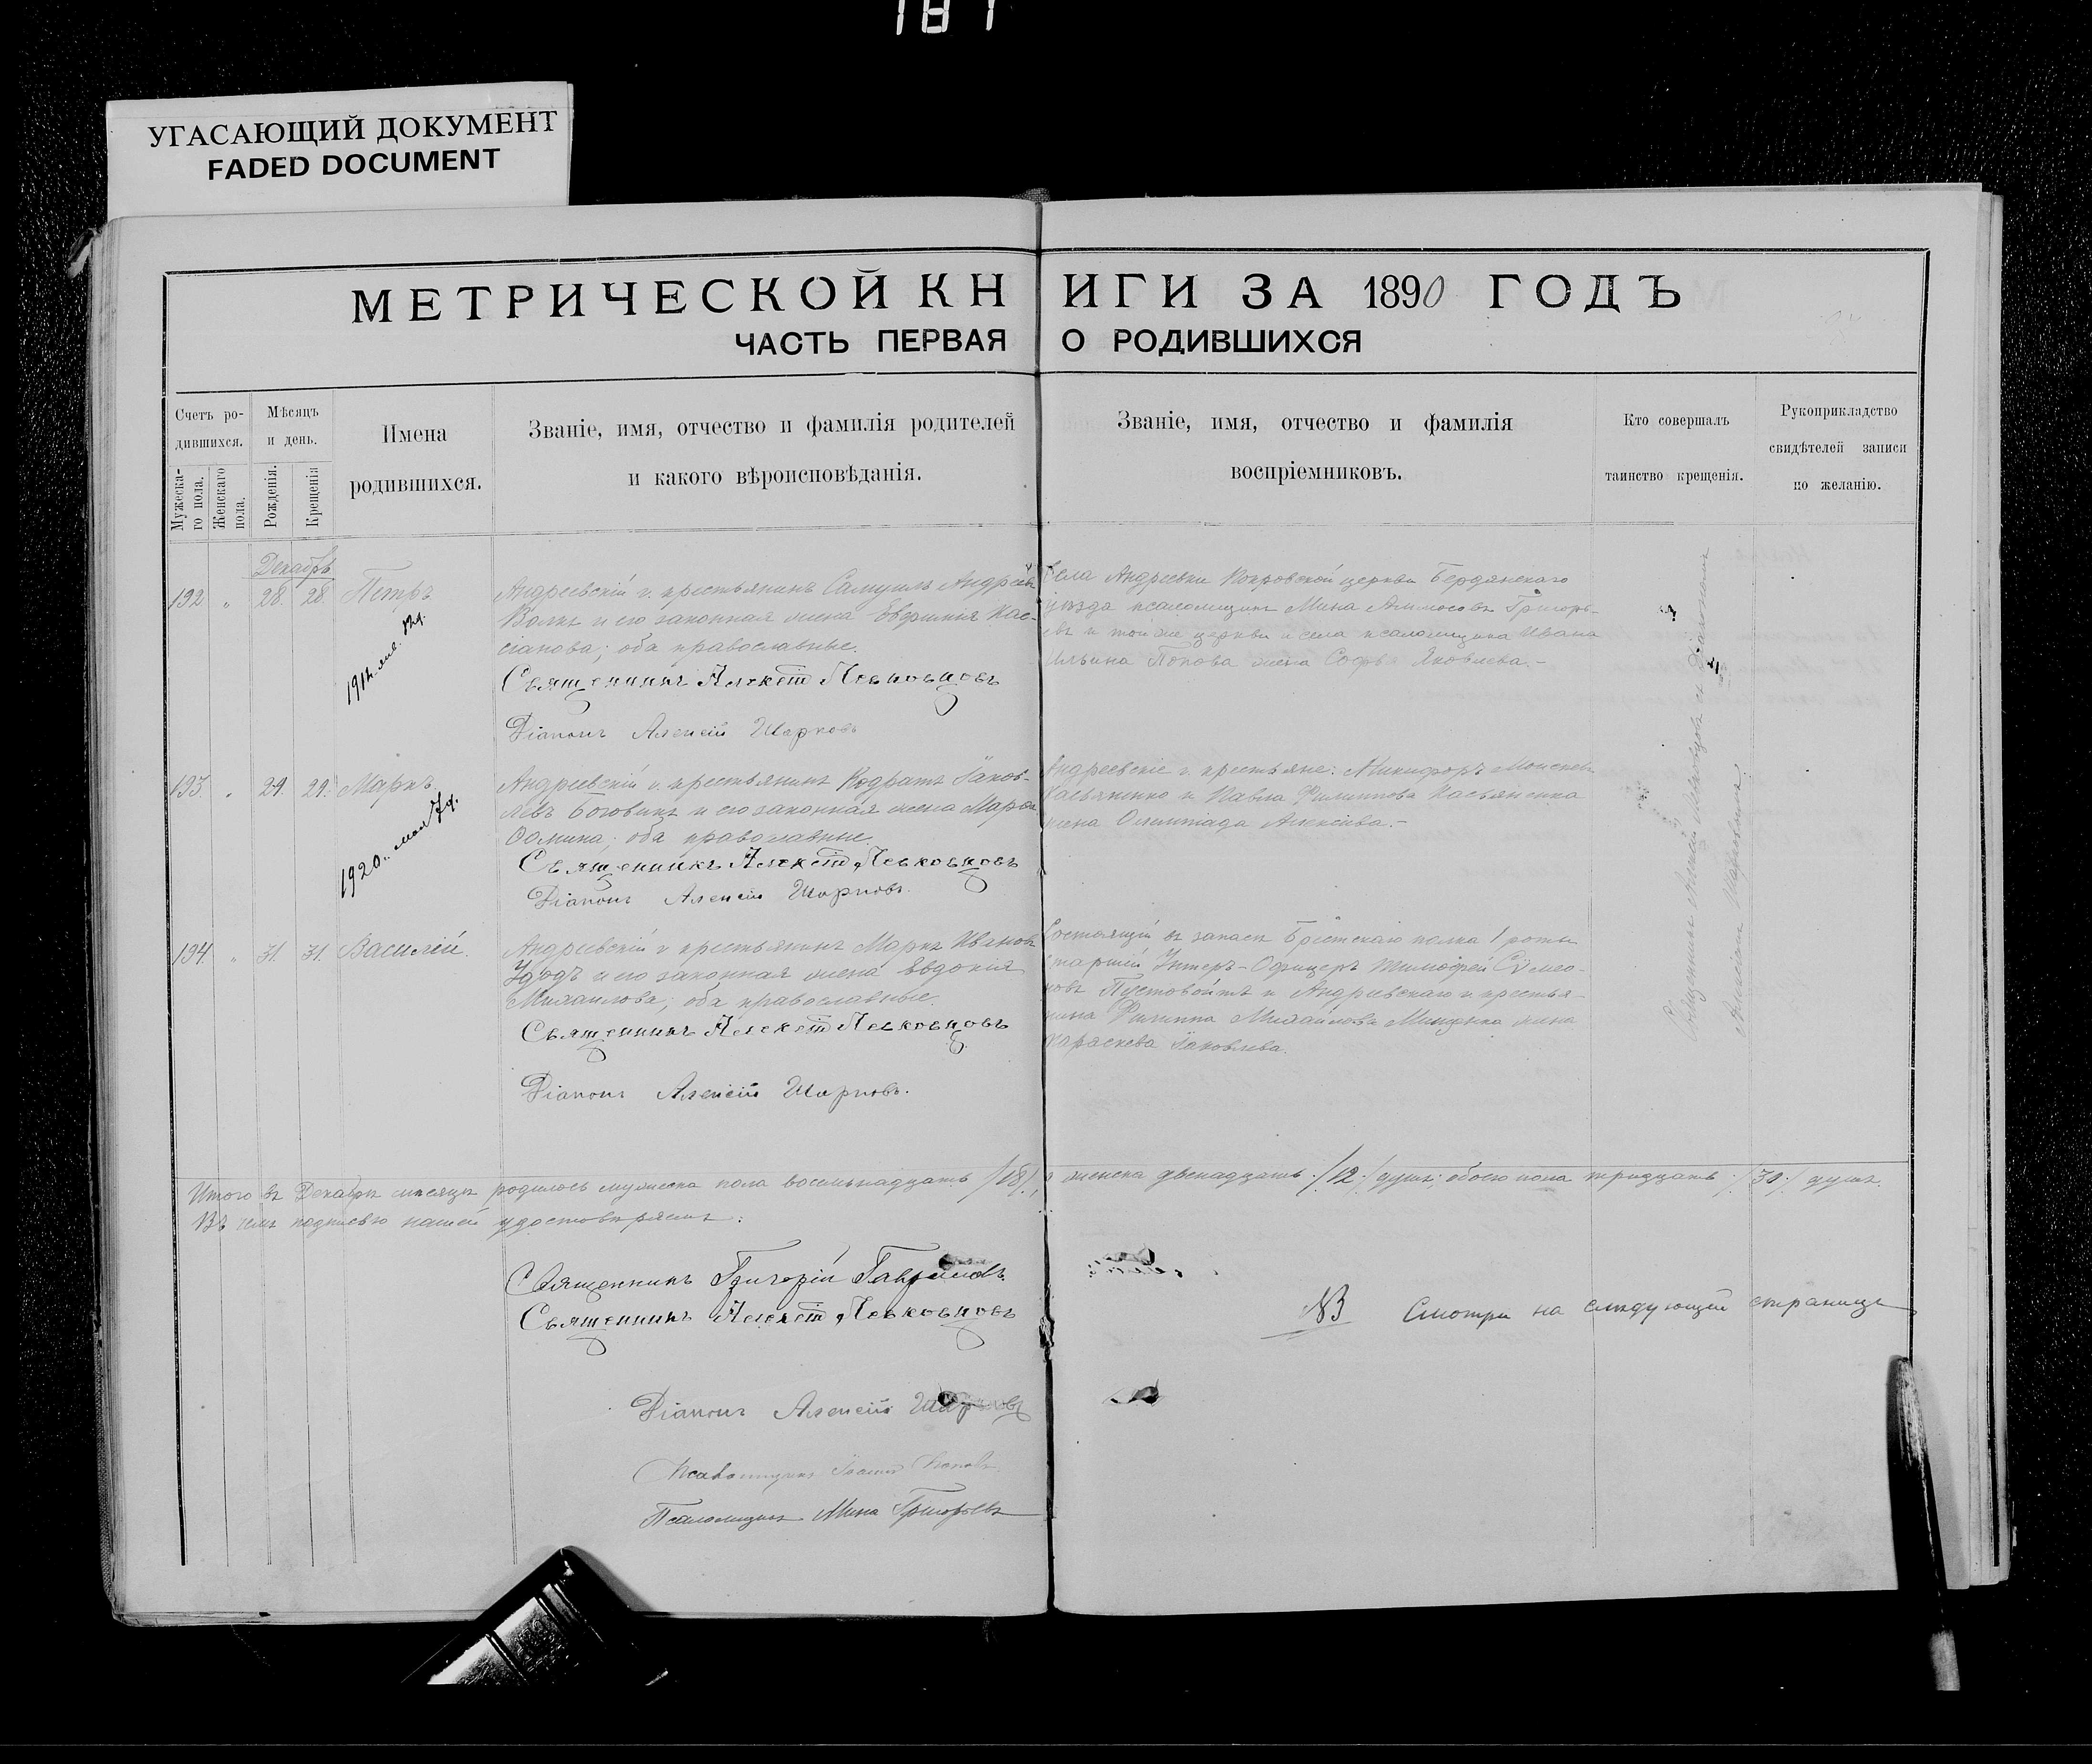 187
УГАСАЮЩИЙ ДОКУМЕНТ
FADED DOCUMENT
МЕТРИЧЕСКОЙ КНИГИ ЗА 1890 ГОДЪ
ЧАСТЬ ПЕРВАЯ О РОДИВШИХСЯ
Счетъ ро-
дившихся.
Мужеска-
го пола.
Женскаго
пола.
Мѣсяцъ
и день.
Рожденія.
Крещенія
Имена
родившихся.
Званіе, имя, отчество и фамилія родителей
и какого вѣроисповѣданія.
Званіе, имя, отчество и фамилія
воспріемниковъ.
Кто совершалъ
таинство крещенія.
Рукоприкладство
свидѣтелей записи
по желанію.
Декабрь
192 " 28. 28. Петръ
1912. янв. 12д.
Андреевскій г. крестьянинъ Самуилъ Андреевъ
Волкъ и его законная жена Евфимія Кас-
сіанова; оба православные.
Священникъ Алексій Левковцовъ
Діаконъ Алексій Шарковъ
Села Андреевки Покровской церкви Бердянскаго
уѣзда псаломщикъ Мина Григорь-
евъ и той же церкви и села псаломщика Ивана
Ильина Попова жена Яковлева.-
193. " 29. 29. Маркъ
1920. мая 7д.
Андреевскій г. крестьянинъ Кодратъ Іаков-
левъ Боговикъ и его законная жена Марѳа
Ѳомина; оба православные.
Священникъ Алексій Левковцовъ
Діаконъ Алексій Шарковъ.
Андреевскіе г. крестьяне: Никифоръ Моисеевъ
Касьяненко и Павла Филиппова Касьяненка
жена Олимпіада Алексіева.-
194. " 31. 31. Василій.
Андреевскій г. крестьянинъ Маркъ Ивановъ
Удодъ и его законная жена Евдокія
Михаилова; оба православные.
Священникъ Алексій Левковцовъ
Діаконъ Алексій Шарковъ.
Состоящій въ запасѣ Брестскаго полка 1 роты
старшій Унтеръ-Офицеръ Тимоѳей Симео-
новъ Пустовойтъ и Андреевскаго г. крестья-
нина Филиппа Михайлова Мищенка жена
Параскева Іаковлева.
Священникъ Алексій Левковцовъ съ діакономъ
Алексіемъ Шарковымъ
Итого въ Декабрѣ мѣсяцѣ родилось мужеска пола восемнадцать /18/, а женска двенадцать /12/ душъ; обоего пола тридцать /30/ душъ.
Въ чемъ подписью нашей удостовѣряемъ:
Священникъ Григорій Гавриловъ
Священникъ Алексій Левковцовъ
NB Смотри на слѣдующей страницѣ
Діаконъ Алексій Шарковъ
Псаломщикъ Іоаннъ Поповъ
Псаломщикъ Мина Григорьевъ